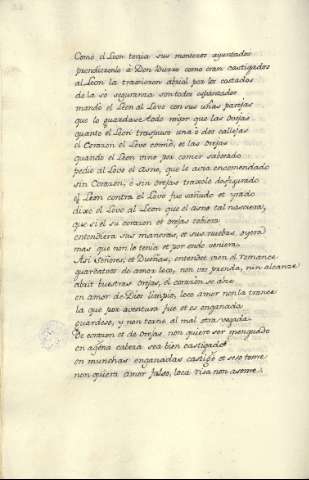 Como el Leon tenia sus monteros ayuntados
prendieronlo à Don Burro como eran castigados
al Leon la traxieron abriol por los costados
de la so segurança son todos espantados
mandó el Leon al Lovo con sus uñas parejas
que lo guardase todo mijor que las ovejas
quanto el Leon traspuso una o dos callejas
el Corazon el Lovo comió, et las orejas
quando el Leon vino por comer saborado
pedio al Lovo el asno, que le avia encomendado
sin Corazon, e sin orejas traxolo desfigurado
el Leon contra el Lovo fue sañudo et yrado
dixo el Lovo al Leon que el asno tal nasciera,
que si el su corazon et orejas toviera
entendiera sus maneras, et sus nuebas oyera
mas que non le tenia et por endo veniera.
Asi Señores, et Dueñas, entendet vien el romance
guardatvos de amor loco, non vos prenda, nin alcanze
abrit vuestras orejas, el corazón se avre
en amor de Dios limpio, loco amor non la trance
la que por aventura fue et es enganada
guardese, y non torne al mal otra vegada
De corazon et de orejas non quiera ser menguada
en agena cabeza sea bien castigada
en munchas enganadas castigo et seso tome
non quiera amor falso, loca risa non asome